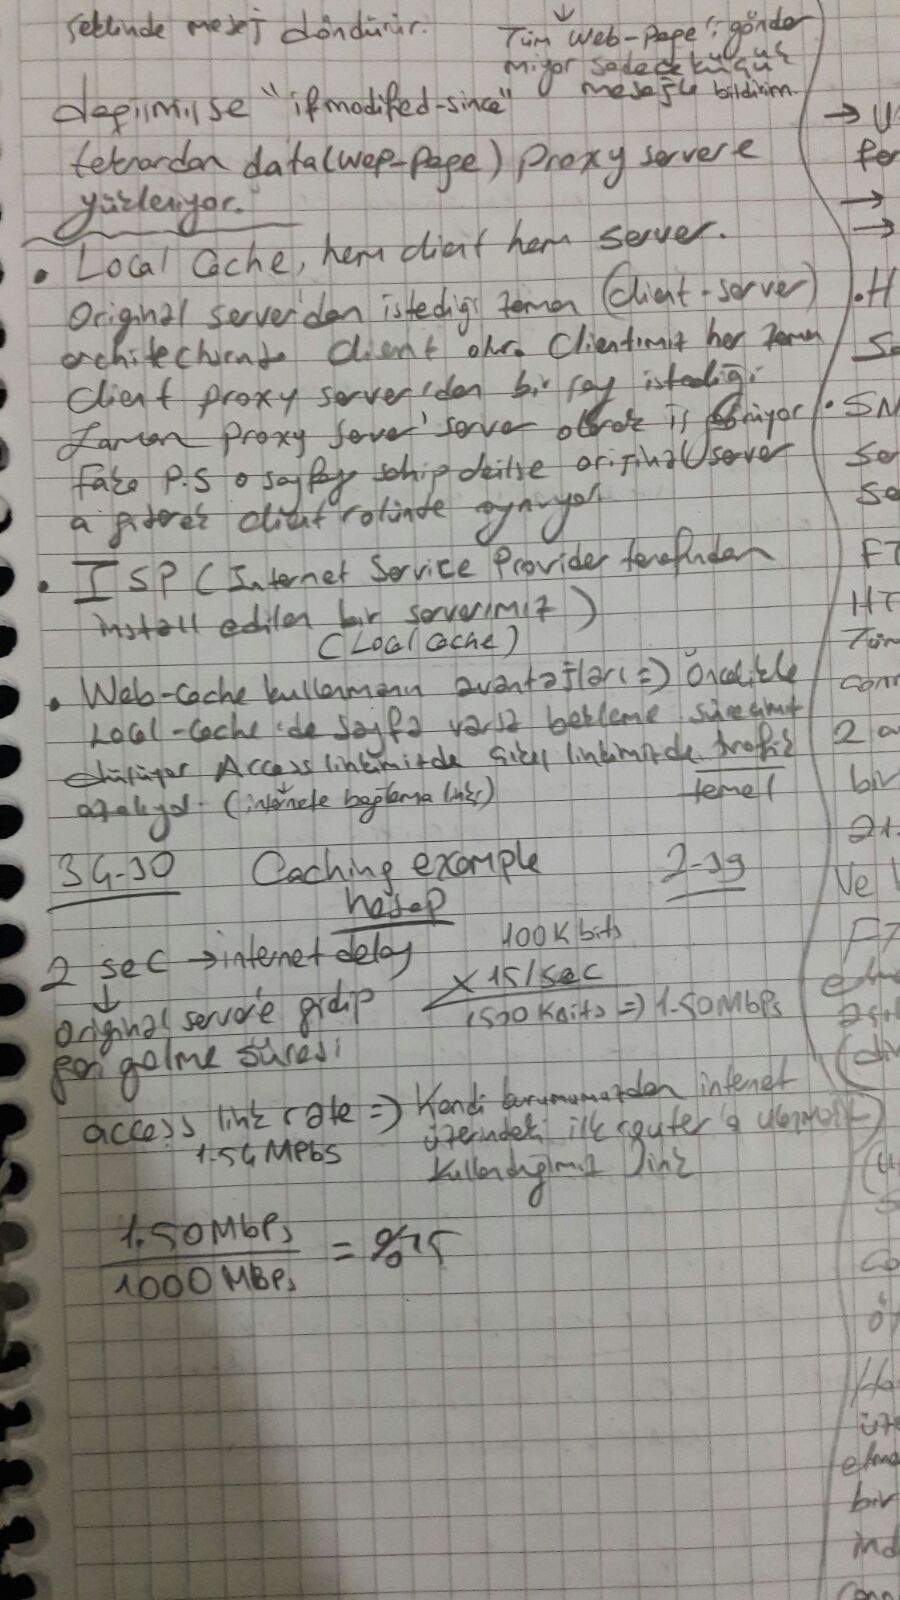 şeklinde mesaj döndürür.
↓
Tüm Web-page'i gönder
miyor sadece küçük
mesajla bildirim.
değilmişse "if modified-since"
tekrardan data(wep-page) Proxy servere
yükleniyor.
• Local Cache, hem client hem server.
Original server'dan istediği zaman (Client-server)
client olur. Clientımız her zaman
Client proxy server'dan bir şey istediği
Zaman proxy server' server olarak iş görüyor
fakat P.S o sayfaya sahip deilse original server
a giderek client rolünde oynuyor
• ISP (Internet Service Provider tarafından
install edilen bir serverımız)
(Local cache)
• Web-Cache kullanmanın avantajları => Öncelikle
Local-cache'de sayfa varsa bekleme süremiz
düşüyor Access linkimizde linkimizde trafik
azalıyor- (internete bağlama linki)
temel
34-30 Caching example 2-39
hesap
2 sec → internet delay
↓
original server'e gidip
geri gelme süresi
100K bits
X 15/sec
1500 Kbits => 1.50Mbps
access link rate => Kendi kurumumuzdan internet
1.54 MPbS üzerindeki ilk router'a
kullandığımız link
1.50Mbps
1000 MBPs
= %15
→
fer
→
→
• H
• SN
se
FT
HT
Tüm
conn
2 a
bir
21.
Ve
FT
bir